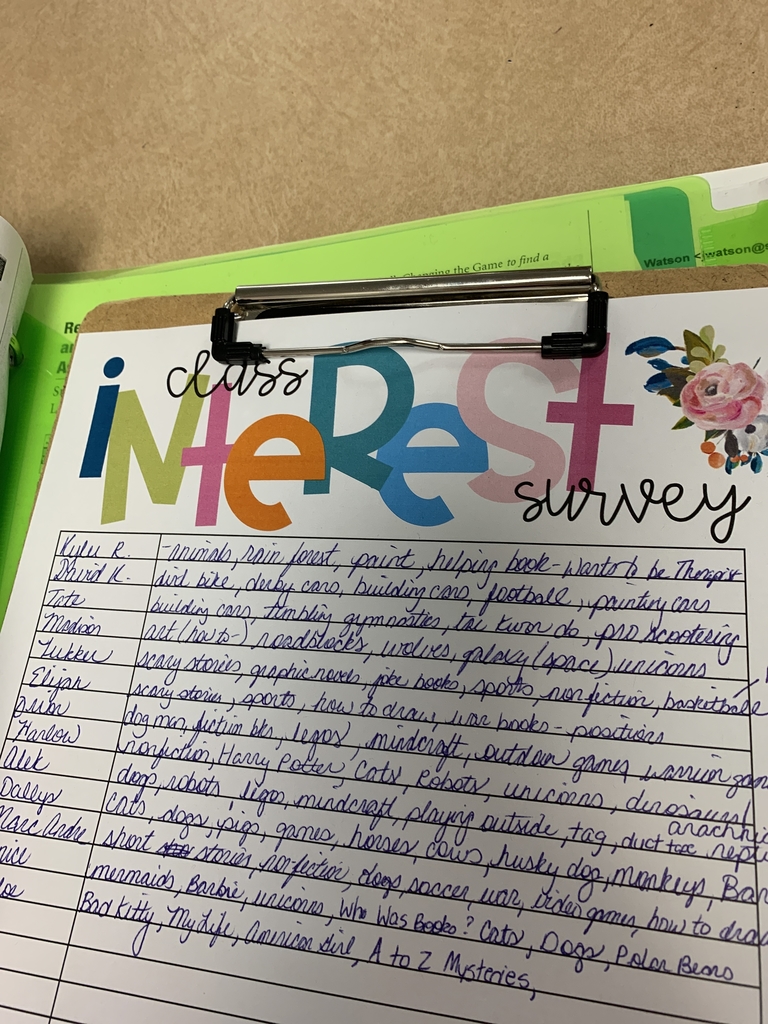 Changing the Game to find a
Watson <jwatson@s
Re
an
A
class
iNteRest
survey
Kylee R. -animals, rain forest, paint, helping book - wants to be Therapist
David K. dird bike, derby cars, building cars, football, painting cars
Tate building cars, tumbling gymnastics, tae kwon do, pro scootering
Madison art (how to-) roadblocks, wolves, galaxy (space) unicorns
scary stories, graphic novels, joke books, sports, nonfiction, basketball
Elijah scary stories, sports, how to draw, war books - positions
dog man, fiction bks, legos, mindcraft, outdoor games, warrior gam
Harlow nonfiction, Harry Potter, Cats, Robots, unicorns, dinosaurs
arachni
Alek dogs, robots, legos, mindcraft, playing outside, tag, duct tape, repti
Dallys cats, dogs, pigs, games, horses, cows, husky dog, monkeys, Bar
Marc Andre short stories, nonfiction, dogs, soccer, war, video games, how to draw
nice mermaids, Barbie, unicorns, Who Was Books? Cats, Dogs, Polar Bears
loe Bad Kitty, My Life, American Girl, A to Z Mysteries,